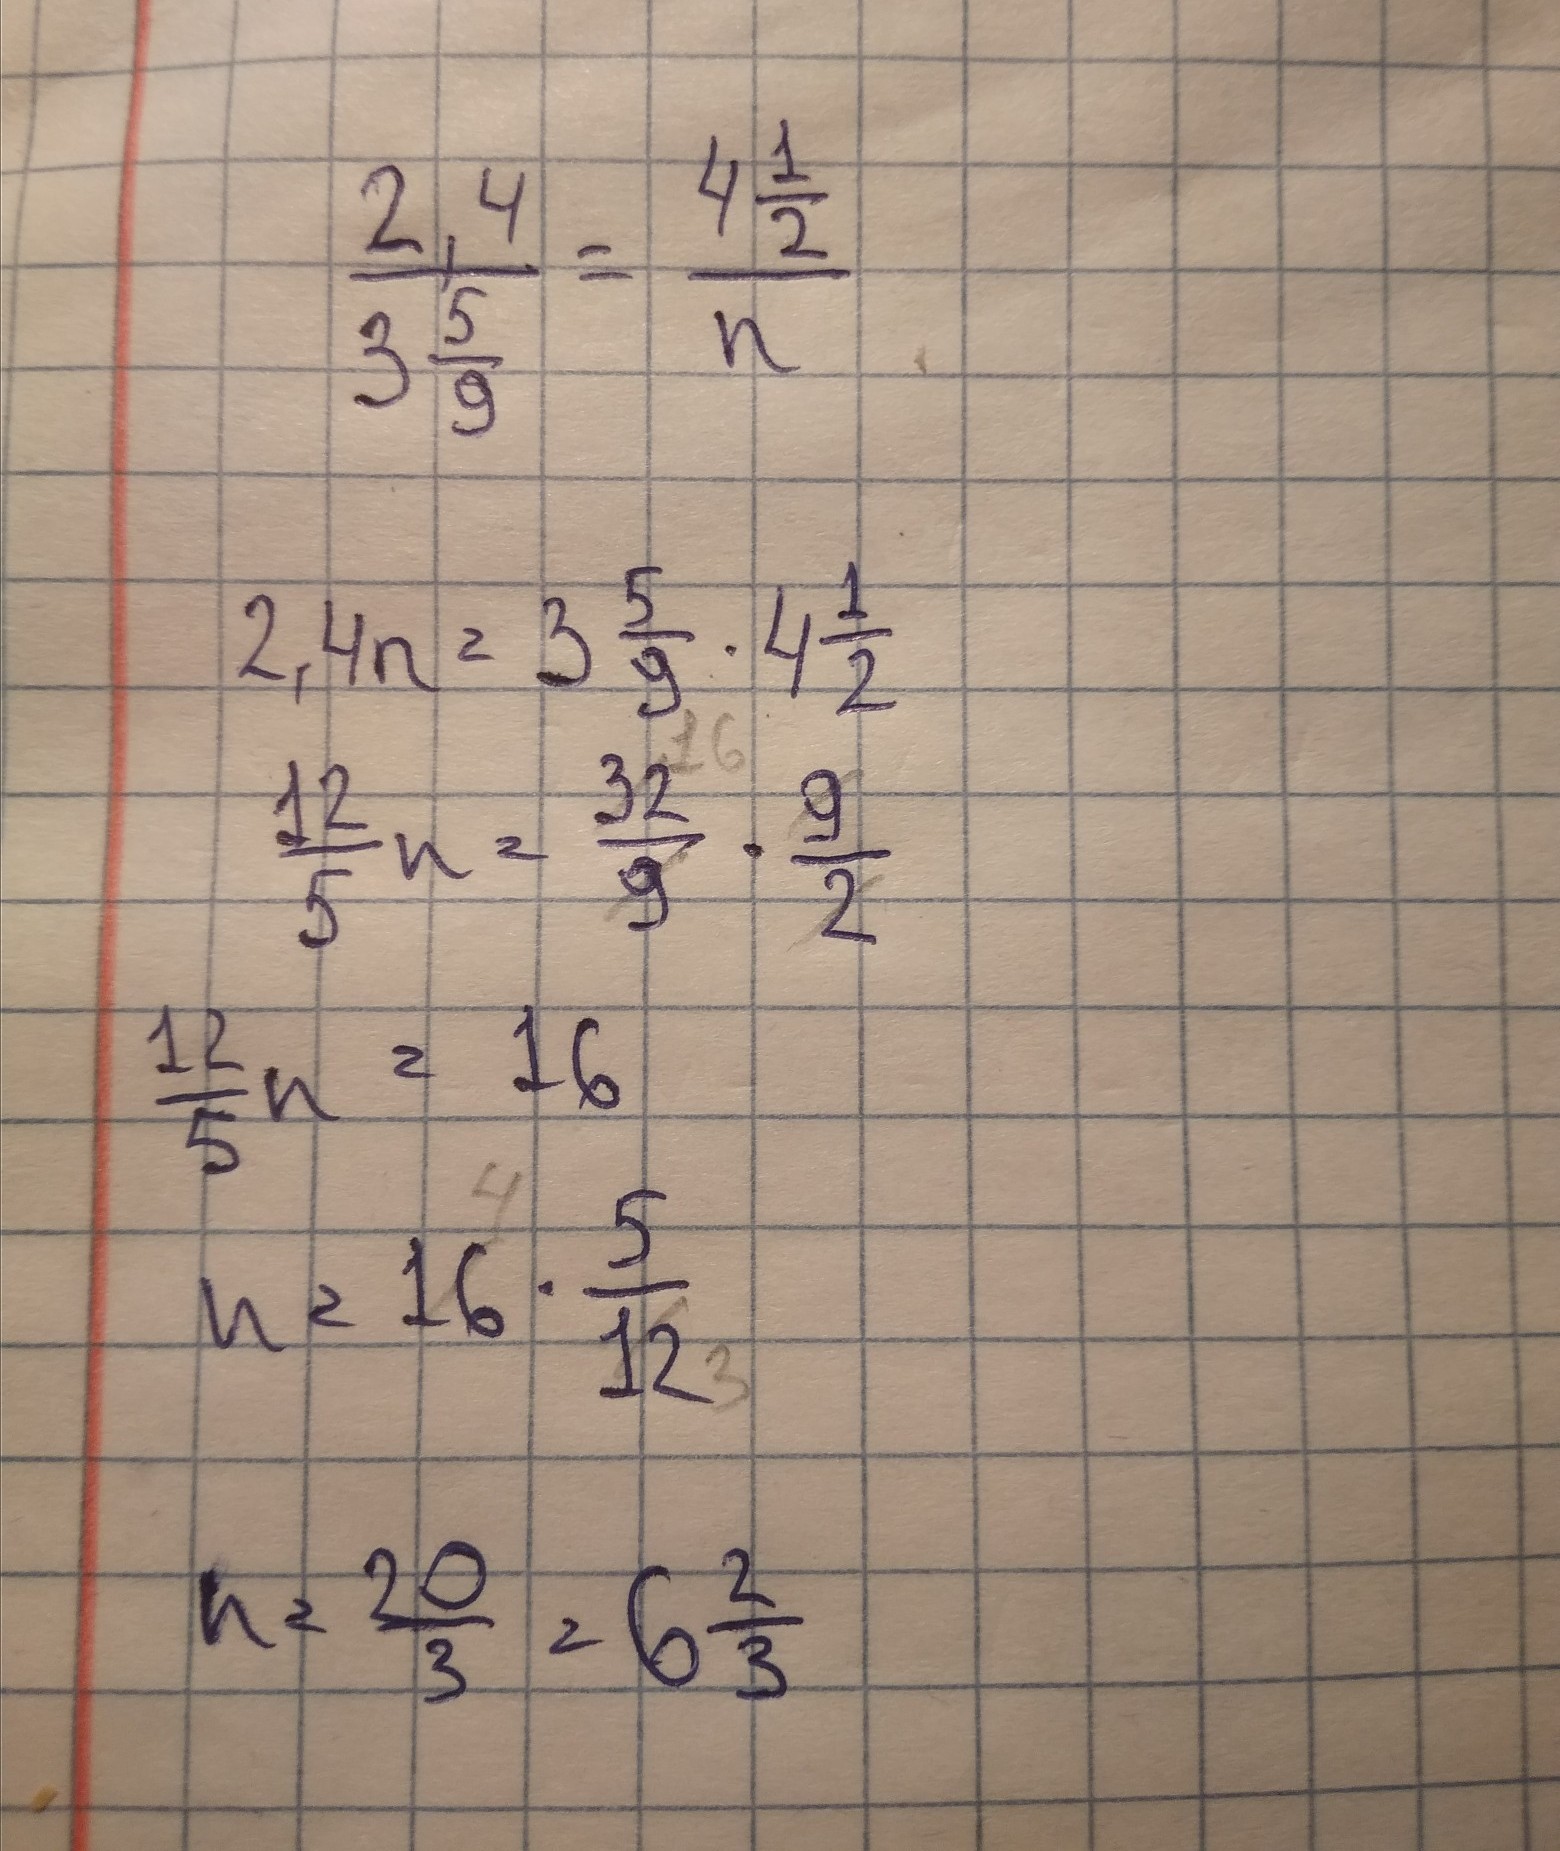 2,4 / 3 5/9 = 4 1/2 / n
2,4n = 3 5/9 · 4 1/2
16
12/5 n = 32/9 · 9/2
12/5 n = 16
4
n = 16 · 5/12 3
n = 20/3 = 6 2/3